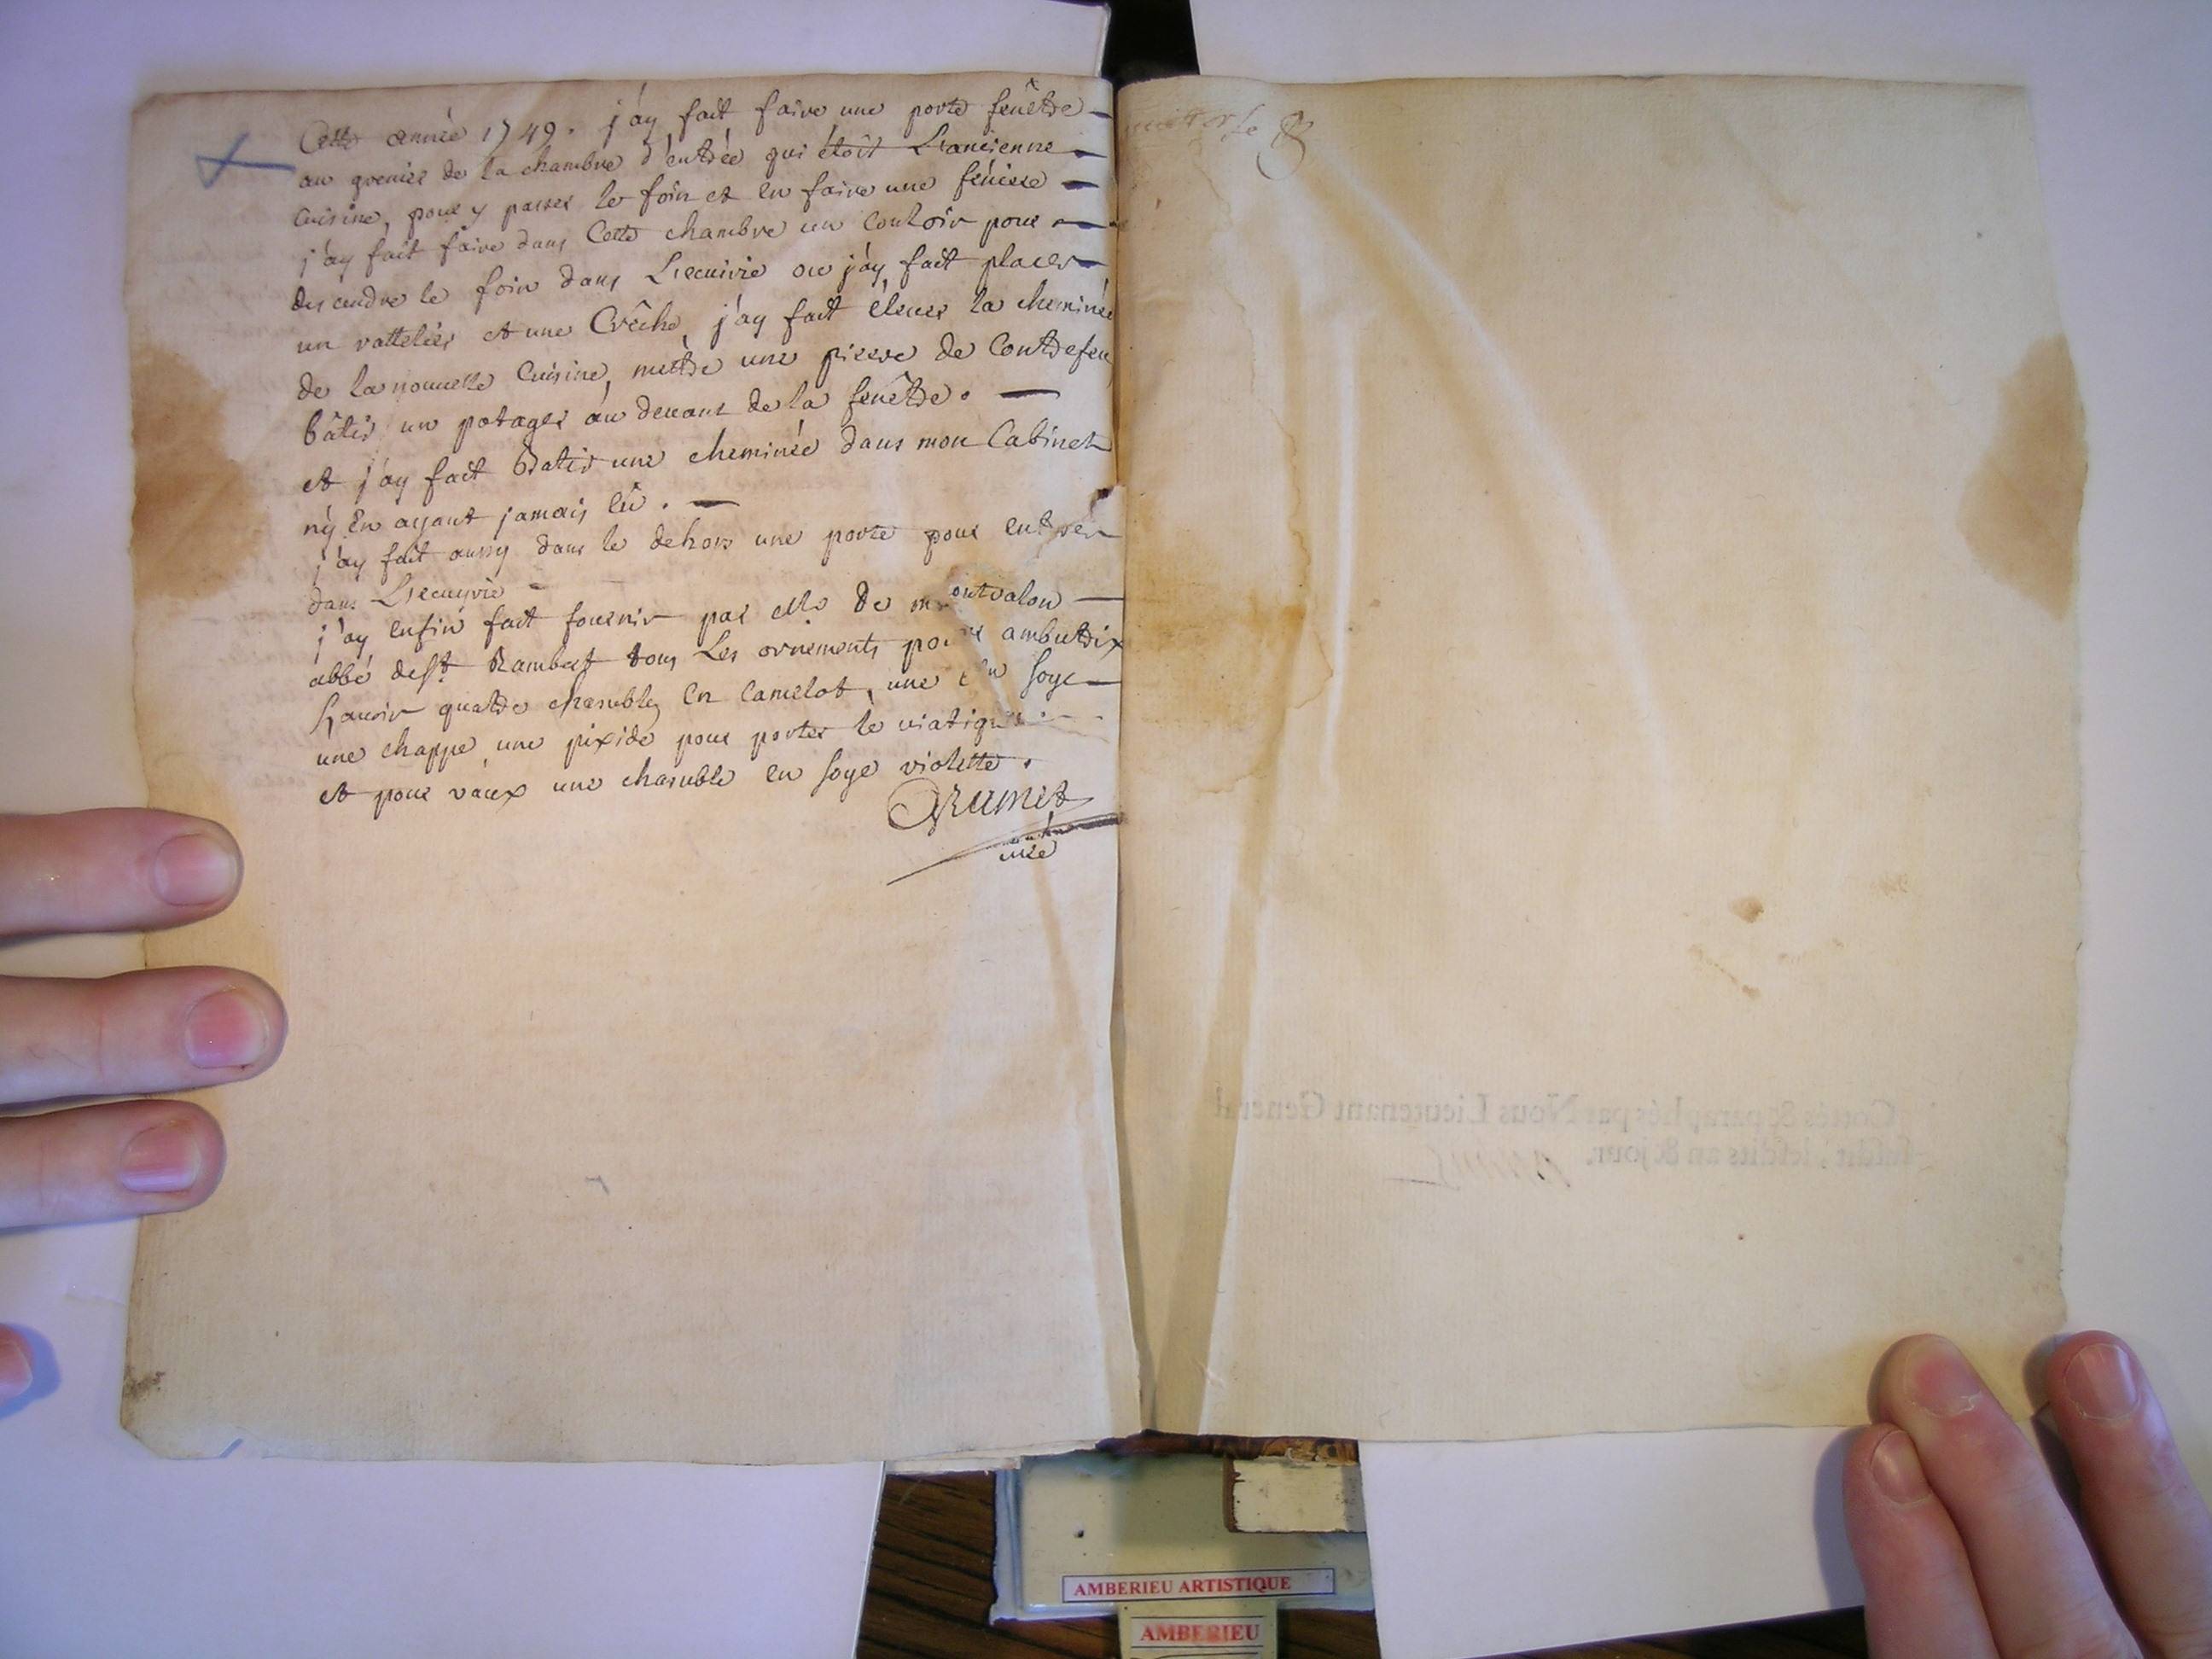 Cette année 1749. j'ay fait faire une porte fenêtre
au grenier de la chambre d'entrée qui étoit L'ancienne
Cuisine, pour y passer le foin et en faire une féniere
j'ay fait faire dans Cette chambre un Couloir pour
descendre le foin dans L'ecuirie ou j'ay fait placer
un rattelier et une Crêche, j'ay fait élever la cheminée
de la nouvelle Cuisine, mettre une pierre de Contrefeu
bâtir un potager au devant de la fenêtre.
et j'ay fait Batir une cheminée dans mon Cabinet
n'y En ayant jamais eû.
j'ay fait aussy dans le dehors une porte pour entrer
dans L'ecuyrie
j'ay enfin fait fournir par Mr de montvalon
abbé de St Rambert tous Les ornements pour ambutrix
sçavoir quatre chasubles en camelot, une en soye
une chappe, une pixide pour porter le viatique
et pour vaux une chasuble en soye violette.
Grumet
curé
Cottés & paraphés par Nous Lieutenant General
susdit, lesdits an & jour.
AMBERIEU ARTISTIQUE
AMBERIEU